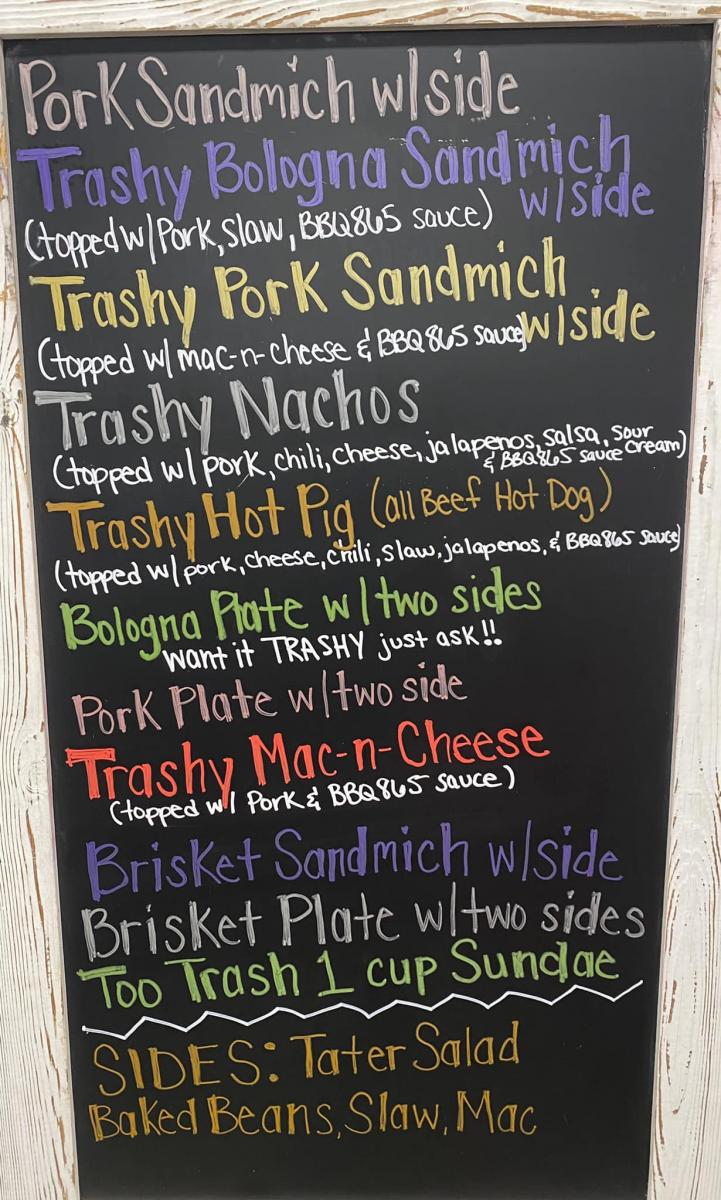 Pork Sandmich w/side
Trashy Bologna Sandmich
w/side
(topped w/Pork, slaw, BBQ865 sauce)
Trashy Pork Sandmich
w/side
(topped w/ mac-n-cheese & BBQ865 sauce)
Trashy Nachos
(topped w/ pork, chili, cheese, jalapenos, salsa, sour
& BBQ865 sauce cream)
Trashy Hot Pig (all Beef Hot Dog)
(topped w/ pork, cheese, chili, slaw, jalapenos, & BBQ865 sauce)
Bologna Plate w/two sides
want it TRASHY just ask!!
Pork Plate w/two side
Trashy Mac-n-Cheese
(topped w/ Pork & BBQ865 sauce)
Brisket Sandmich w/side
Brisket Plate w/two sides
Too Trash 1 cup Sundae
SIDES: Tater Salad
Baked Beans, Slaw, Mac